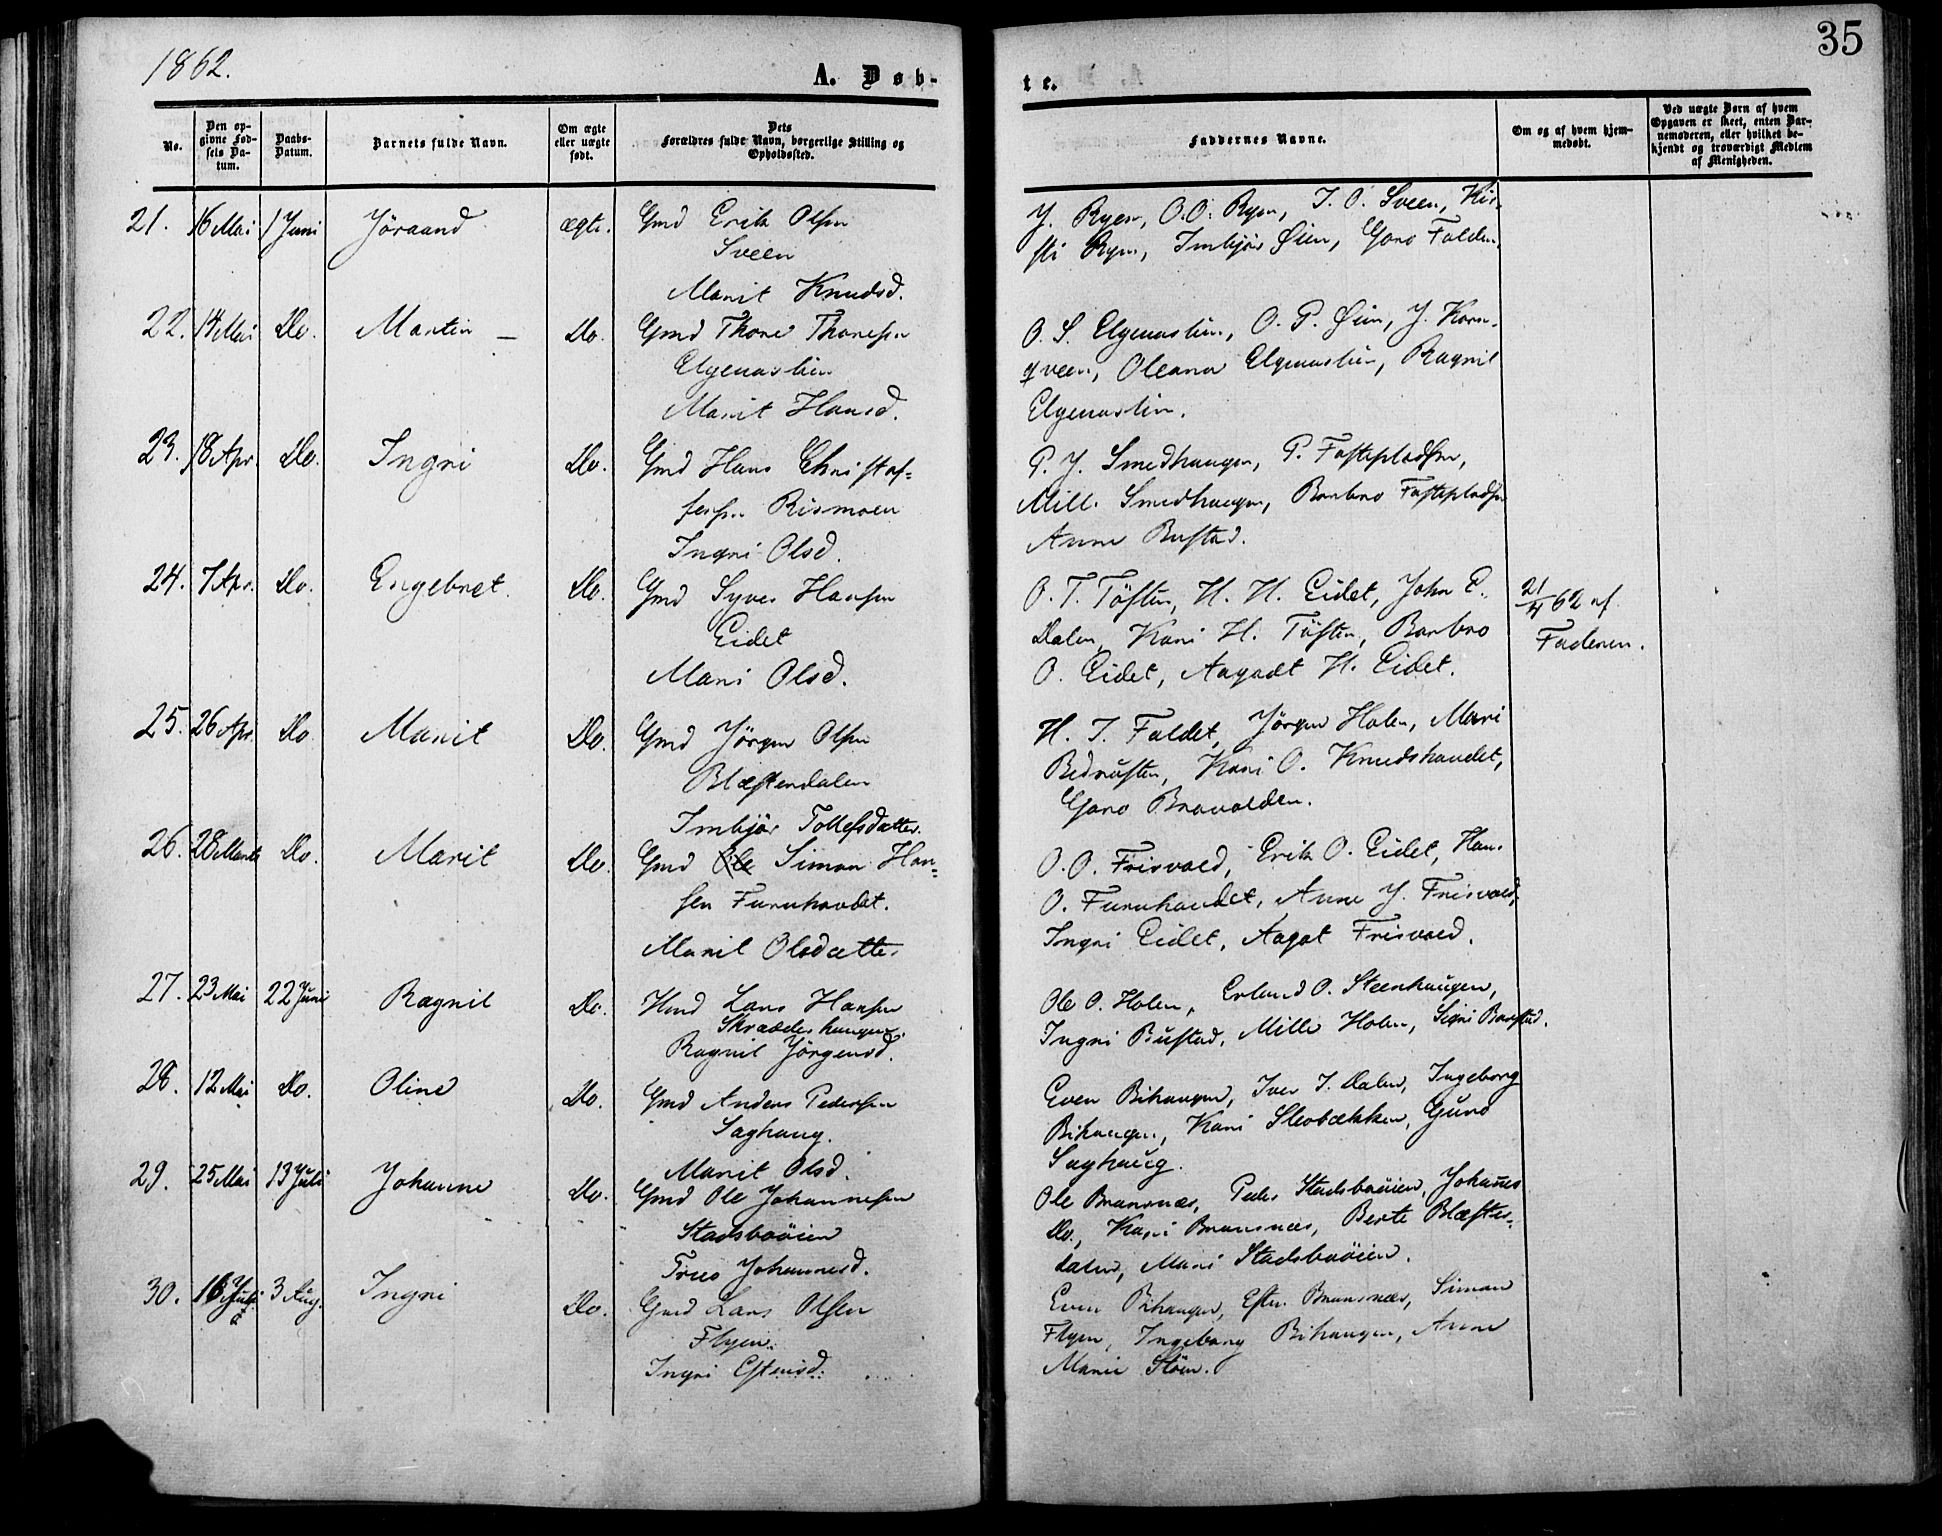 1862.
A. Døb-
No.
Den op-
givne Fød-
sels Da-
tum.
Daabs-
Datum.
Barnets fulde Navn.
Om ægte
eller uægte
født.
Dets
Forældres fulde Navn, borgerlige Stilling og
Opholdssted.
21. 16 Mai 1 Juni Jöraand ægte. Gmd Erik Olsen
Sveen
Marit Knudsd.
22. 14 Mai Do. Martin Do. Gmd Thore Thoresen
Elgenaslien
Marit Hansd.
23. 18 Apr. Do. Ingri Do. Gmd Hans Christof-
fersen Rismoen
Ingri Olsd.
24. 7 Apr. Do. Engebret. Do. Gmd Syver Hansen
Eidet
Mari Olsd.
25. 26 Apr. Do Marit Do. Gmd Jörgen Olsen
Blæsterdalen
Imbjör Tollefsdatter.
26. 28 Marts Do. Marit Do. Gmd Simon Han-
sen Furuhovdet.
Marit Olsdatter
27. 23 Mai 22 Juni Ragnil Do. Hmd Lars Hansen
Skrædderhaugen.
Ragnil Jörgensd.
28. 12 Mai Do. Oline Do. Gmd Anders Pedersen
Saghaug.
Marit Olsd.
29. 25 Mai 13 Juli Johanne Do. Gmd Ole Johannesen
Stadsbuöien
Johannesd.
30. 16 Juli 3 Aug. Ingri Do. Gmd Lars Olsen
Flyen.
Ingri Estensd.
35
te.
Faddernes Navne.
Om og af hvem hjem-
medøbt.
Ved uægte Børn af hvem
Opgaven er skeet, enten Bar-
nemoderen, eller hvilket be-
kjendt og troværdigt Medlem
af Menigheden.
J. Ryen, O. O. Ryen, I. O. Sveen, Kir-
sti Ryen, Imbjör Öien, Goro Falden.
O. S. Elgenaslien, O. P. Öien, J. Korn-
qveen, Oleana Elgenaslien, Ragnil
Elgenaslien.
P. J. Smedhaugen, P. Fostepladsen,
Mill. Smedhaugen, Barbro Fostepladsen
Anne Bustad.
O. T. Töften, H. H. Eidet, John E.
Dalen, Kari H. Töften, Barbro
O. Eidet, Aagaat H. Eidet.
21/4 62 af
Faderen.
H. T. Faldet, Jörgen Holen, Mari
Kari O. Knudshovdet,
Goro Bravolden.
O. O. Frisvold, Erik O. Eidet, Han.
O. Furuhovdet, Anne J. Frisvold,
Ingri Eidet, Aagot Frisvold.
Ole O. Holen, Erland O. Steenhaugen,
Ingri Bustad, Mille Holen, Sigri Bustad.
Even Bihaugen, Iver I. Dalen, Ingeborg
Bihaugen, Kari Guro
Saghaug.
Ole Bransnæs, Peder Stadsbuöien, Johannes
Do., Kari Brænsnæs, Berte Blæster-
dalen, Mari Stadsbuöien.
Even Bihaugen, Esten Brænsnæs, Simon
Flyen, Ingeborg Bihaugen, Anne
Marie Stöen.